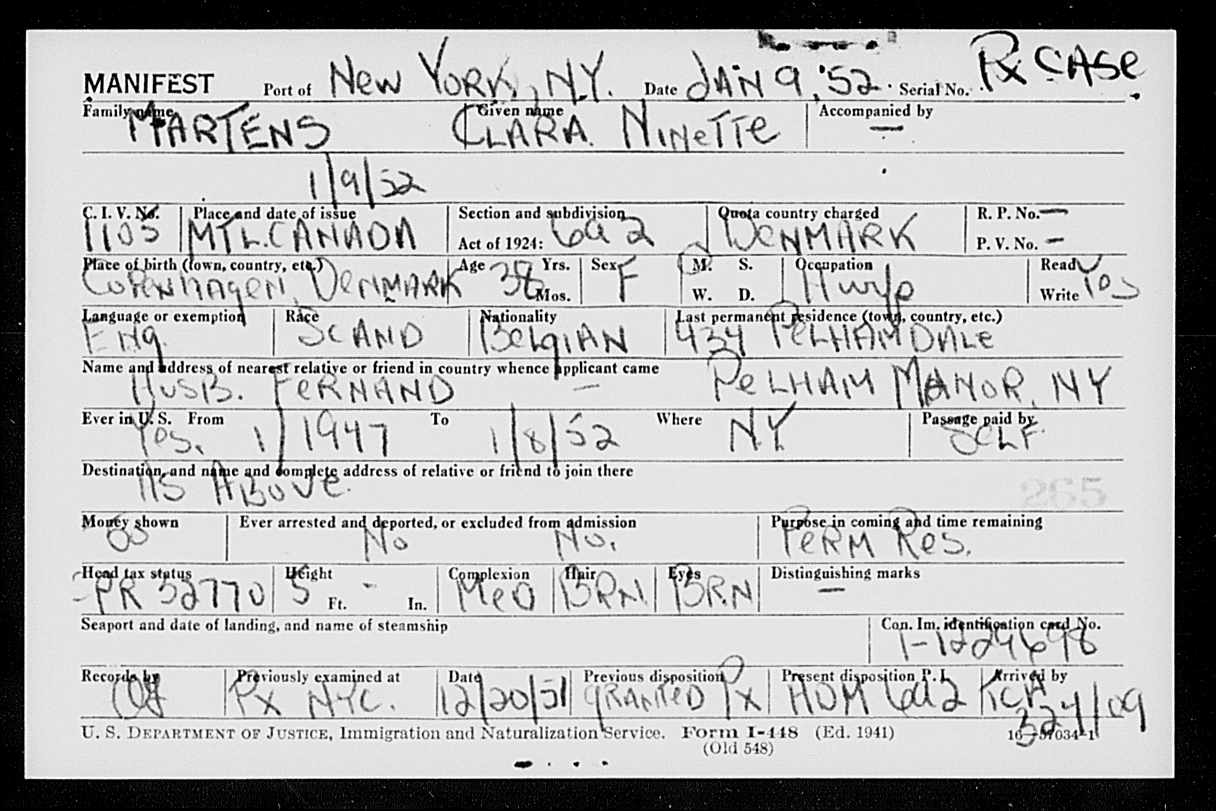 MANIFEST Port of New York, N.Y. Date JAN 9, '52 Serial No. Px CASE
Family name MARTENS Given name CLARA NINETTE Accompanied by —
1/9/52
C. I. V. No. 1105 Place and date of issue MTL. CANADA Section and subdivision Act of 1924: 6a2 Quota country charged DENMARK R. P. No. — P. V. No. —
Place of birth (town, country, etc.) COPENHAGEN, DENMARK Age 38 Yrs. Mos. Sex F M. S. W. D. Occupation Hwfe Read Write Yes
Language or exemption ENG. Race SCAND Nationality BELGIAN Last permanent residence (town, country, etc.) 434 PELHAMDALE
Name and address of nearest relative or friend in country whence applicant came HUSB. FERNAND — PELHAM MANOR, NY
Ever in U. S. Yes. From 1/1947 To 1/8/52 Where N.Y. Passage paid by SELF
Destination, and name and complete address of relative or friend to join there AS ABOVE.
265
Money shown Ever arrested and deported, or excluded from admission No No. Purpose in coming and time remaining PERM RES.
Head tax status PR 32770 Height 5 Ft. - In. Complexion MED Hair BRN Eyes BRN Distinguishing marks —
Seaport and date of landing, and name of steamship Con. Im. identification card No. 1-1224698
Records by Previously examined at Px NYC. Date 12/20/51 Previous disposition GRANTED Px Present disposition P. I. ADM 6a2 Arrived by KLM
324/09
U. S. DEPARTMENT OF JUSTICE, Immigration and Naturalization Service. Form I-448 (Ed. 1941) 16—57034-1
(Old 548)